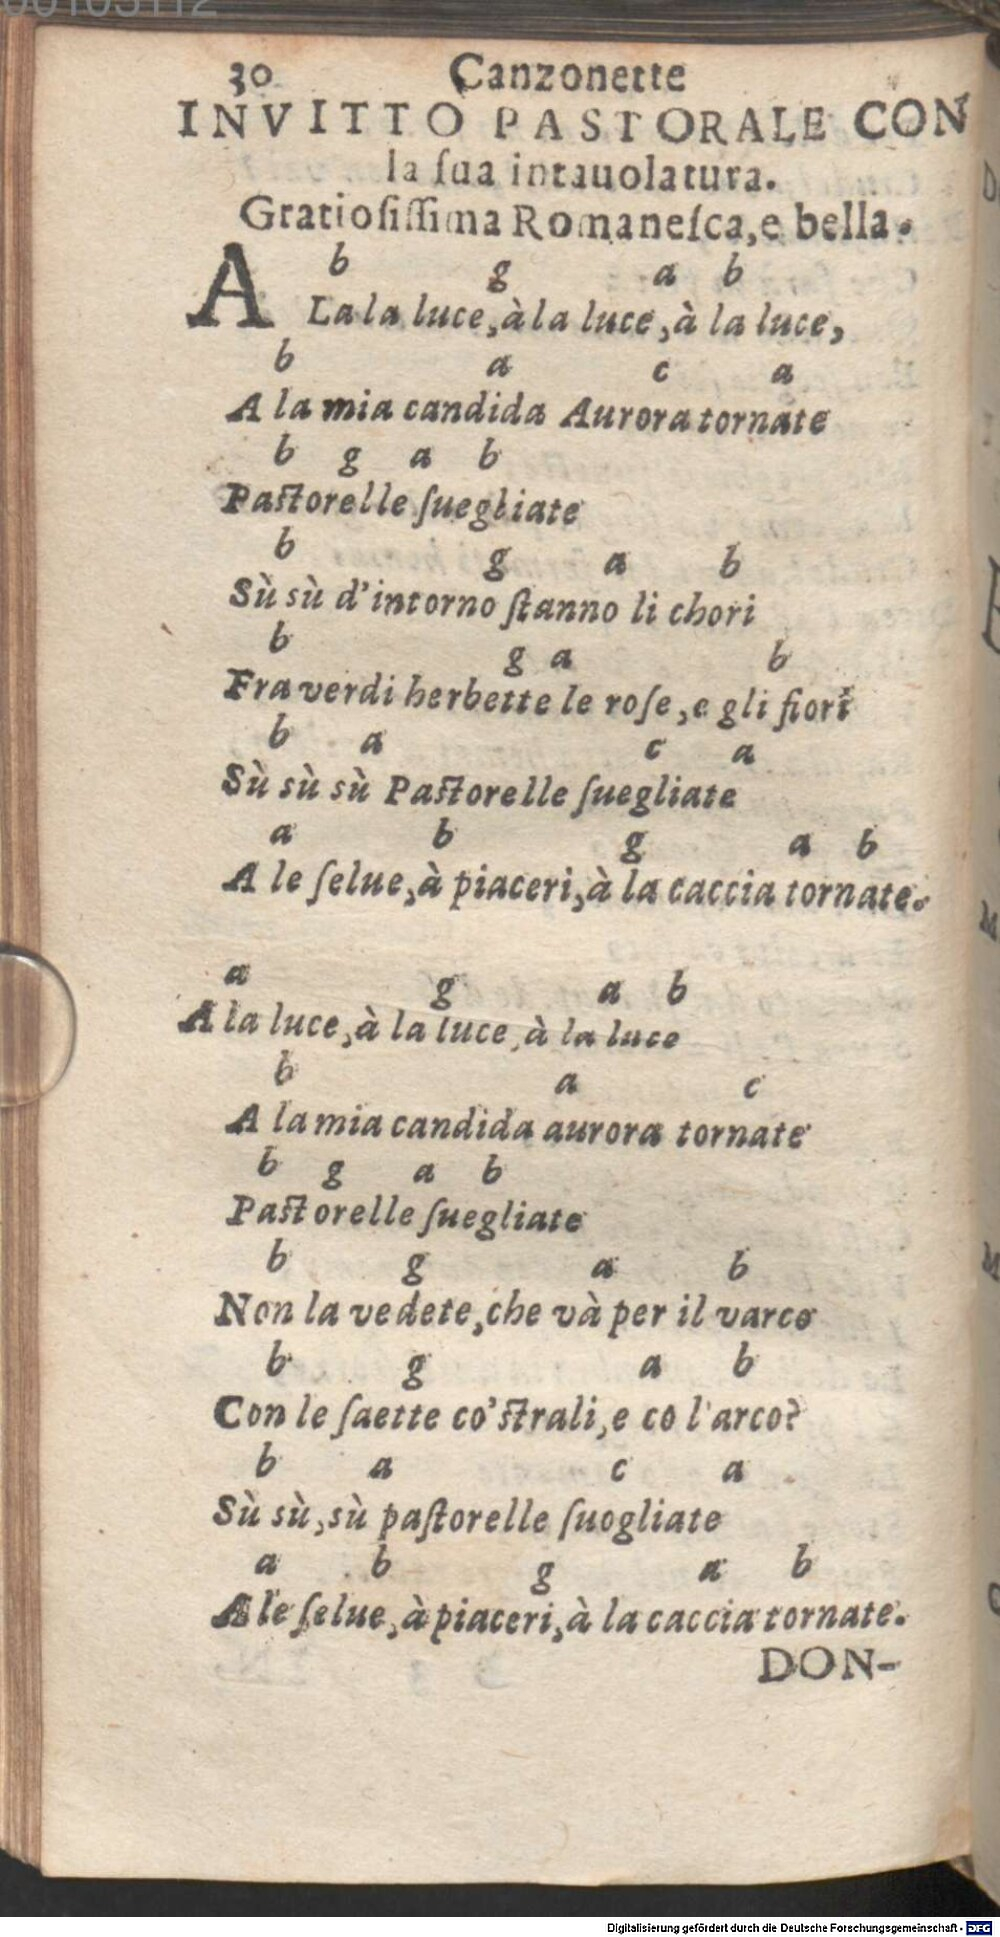 30 Canzonette
INVITTO PASTORALE CON
la ſua intauolatura.
Gratioſiſſima Romaneſca, e bella.
b g a b
A La la luce, à la luce, à la luce,
b a c a
A la mia candida Aurora tornate
b g a b
Paſtorelle ſuegliate
b g a b
Sù sù d'intorno ſtanno li chori
b g a b
Fra verdi herbette le roſe, e gli fiori
b a c a
Sù sù sù Paſtorelle ſuegliate
a b g a b
A le ſelue, à piaceri, à la caccia tornate.
a g a b
A la luce, à la luce, à la luce
b a c
A la mia candida aurora tornate
b g a b
Paſtorelle ſuegliate
b g a b
Non la vedete, che và per il varco
b g a b
Con le ſaette co'ſtrali, e co l'arco?
b a c a
Sù sù, sù paſtorelle ſuogliate
a b g a b
A le ſelue, à piaceri, à la caccia tornate.
DON-
Digitalisierung gefördert durch die Deutsche Forschungsgemeinschaft - DFG